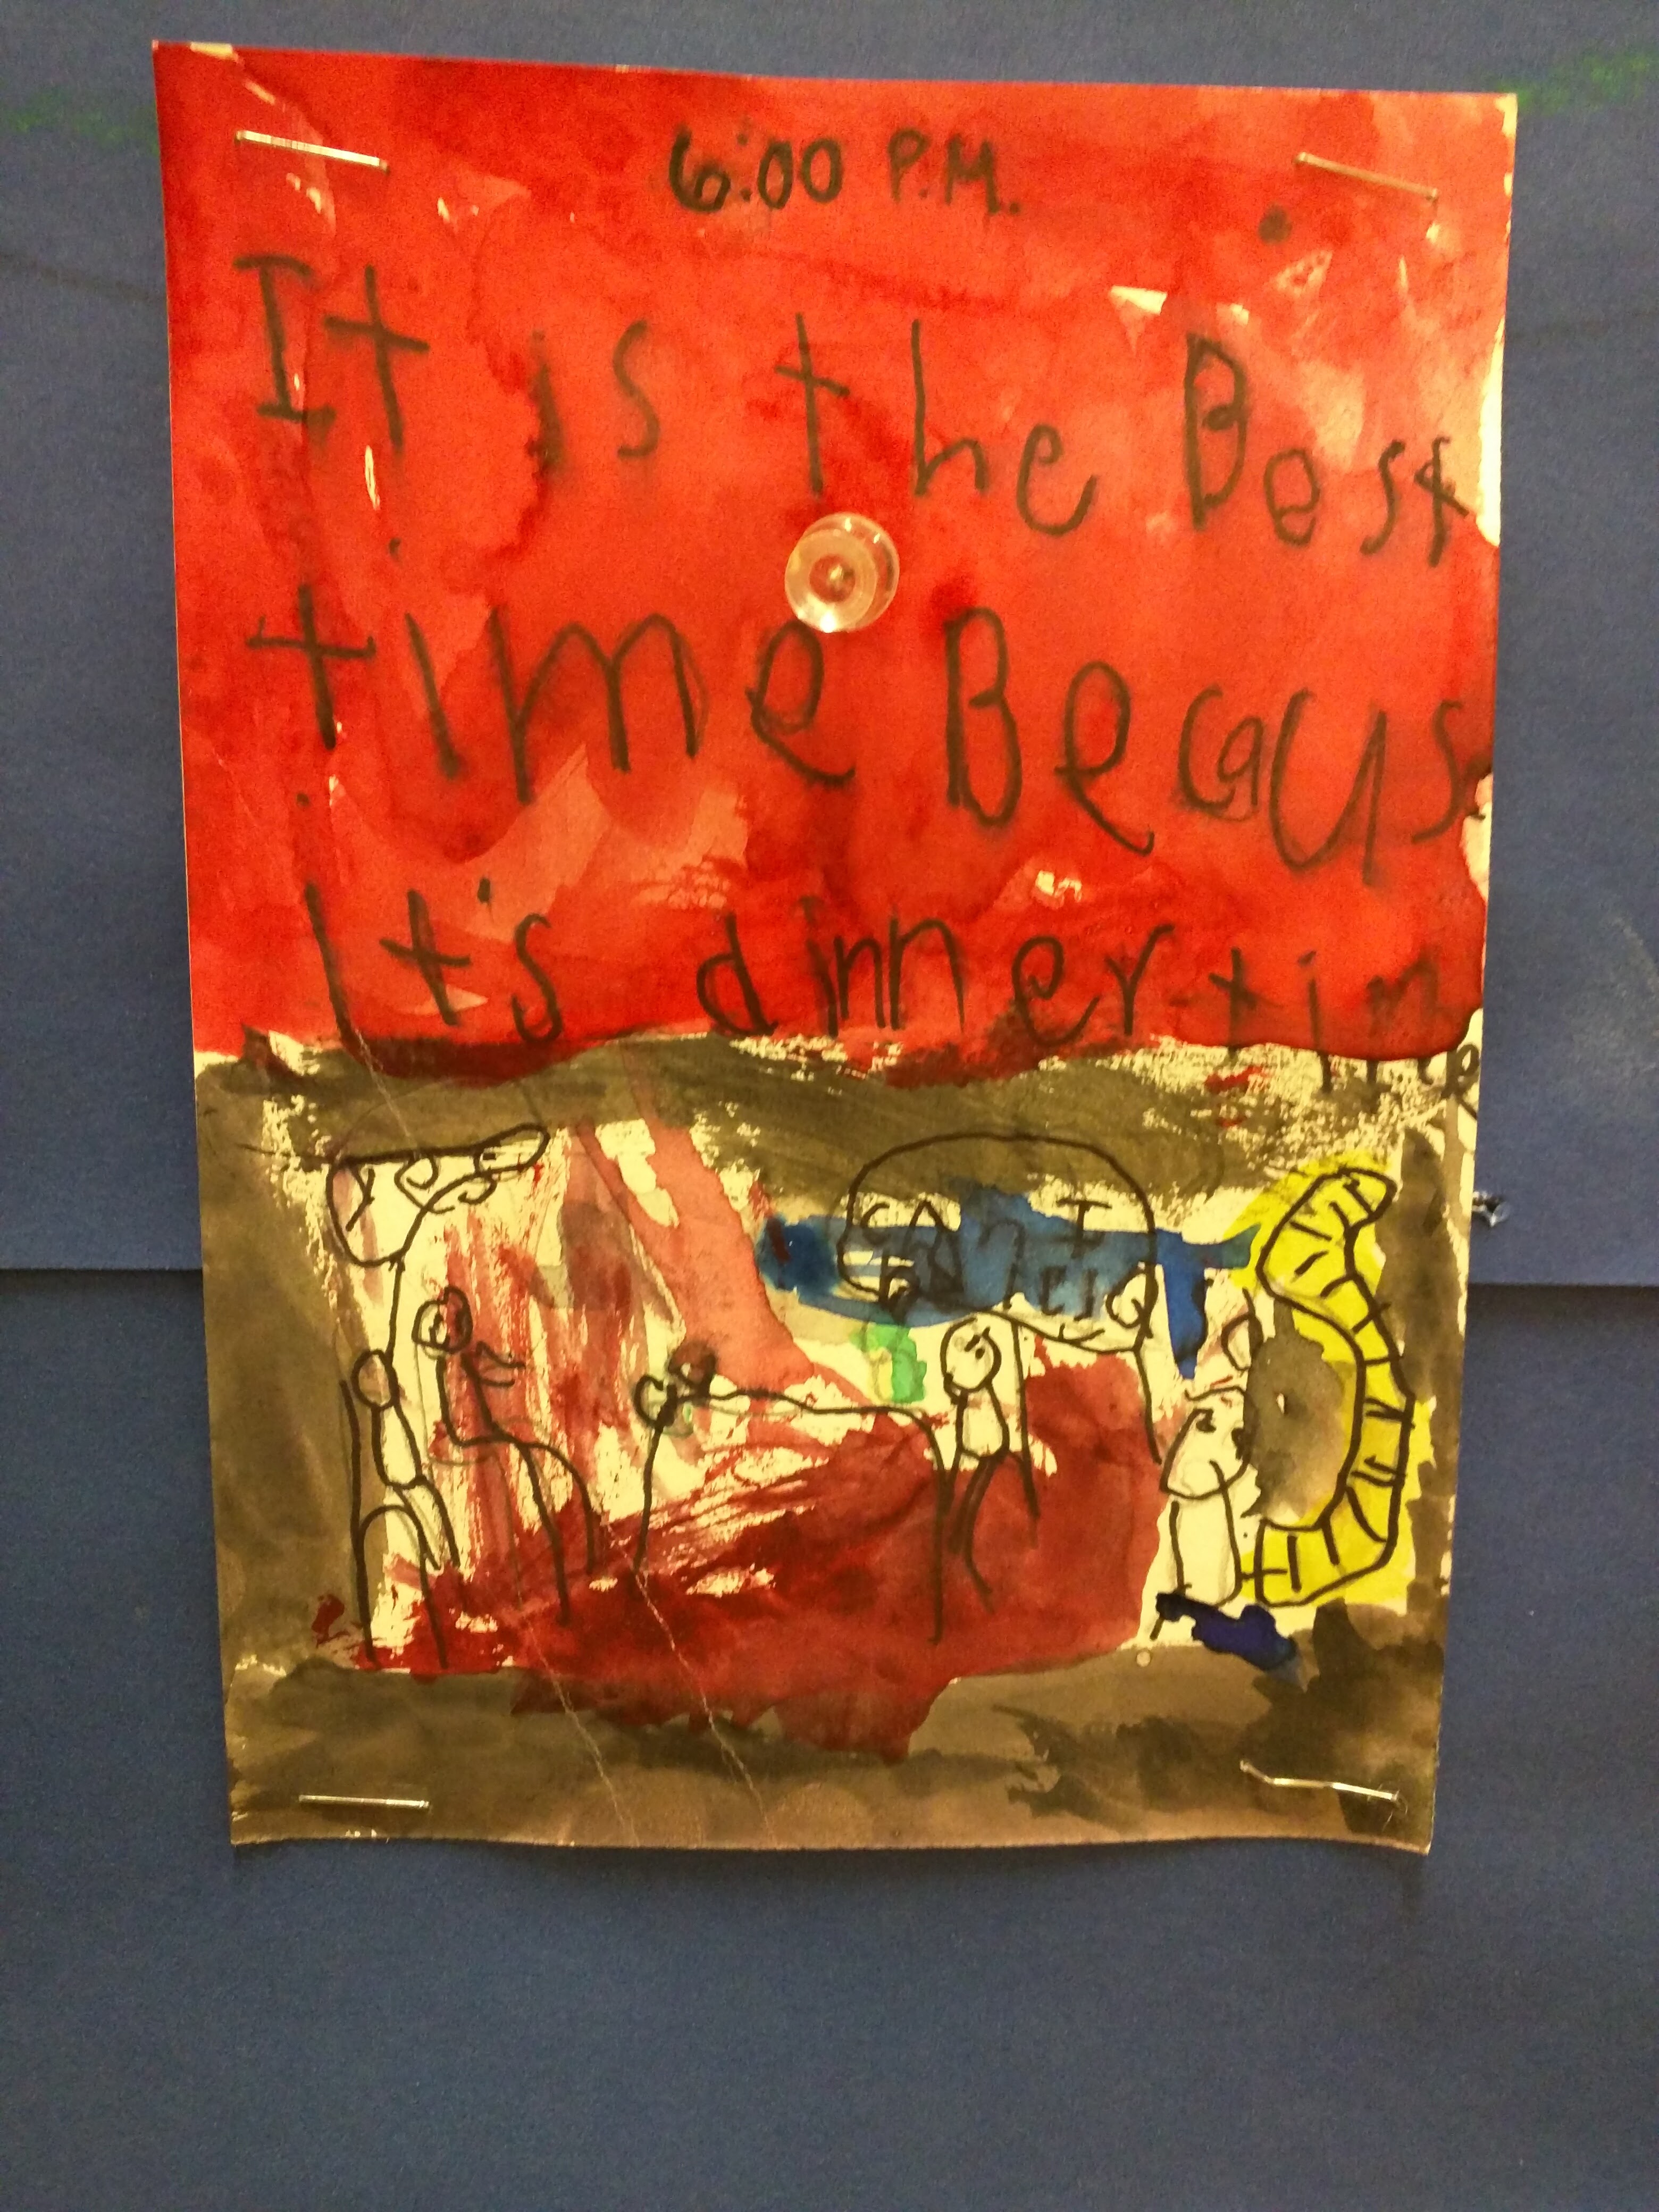 6:00 P.M.
It is the Best
time Becaus
It's dinner time
yes
CAn I